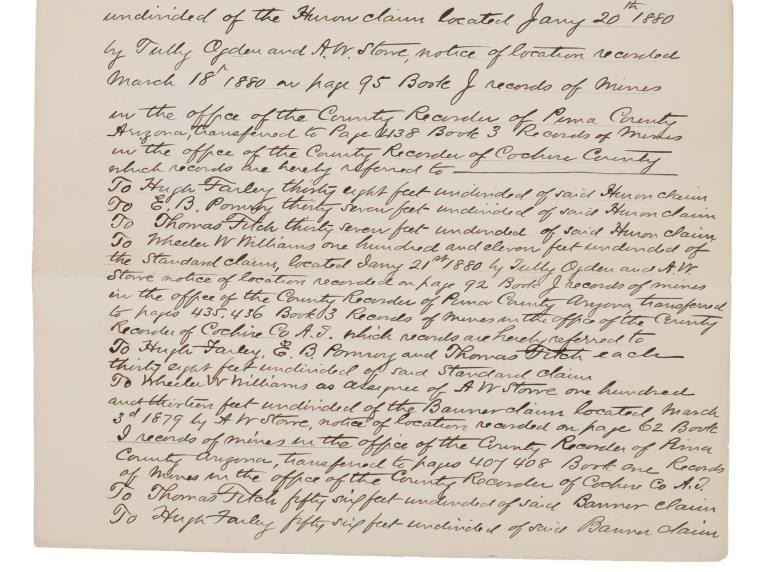 undivided of the Huron claim located Jany 20th 1880
by Tully Ogden and A.W. Stowe, notice of location recorded
March 18th 1880 on page 95 Book J records of mines
in the office of the County Recorder of Pima County
Arizona, transferred to Page 438 Book 3 Records of Mines
in the office of the County Recorder of Cochise County
which records are hereby referred to
To Hugh Farley thirty eight feet undivided of said Huron claim
To E. B. Pomroy thirty seven feet undivided of said Huron claim
To Thomas Fitch thirty seven feet undivided of said Huron claim
To Wheeler W Williams one hundred and eleven feet undivided of
the Standard claim, located Jany 21st 1880 by Tully Ogden and A.W
Stowe notice of location recorded on page 92 Book J records of mines
in the office of the County Recorder of Pima County Arizona, transferred
to pages 435.436 Book 3 Records of mines in the office of the County
Recorder of Cochise Co A.T. which records are hereby referred to
To Hugh Farley, E. B. Pomroy and Thomas Fitch each
thirty eight feet undivided of said Standard claim
To Wheeler W Williams as assignee of A W Stowe one hundred
and thirteen feet undivided of the Banner claim located, March
3d 1879 by A W Stowe, notice of location recorded on page 62 Book
I records of mines in the office of the County Recorder of Pima
County Arizona, transferred to pages 407 408 Book one Records
of Mines in the office of the County Recorder of Cochise Co A.T.
To Thomas Fitch fifty six feet undivided of said Banner claim
To Hugh Farley fifty six feet undivided of said Banner claim